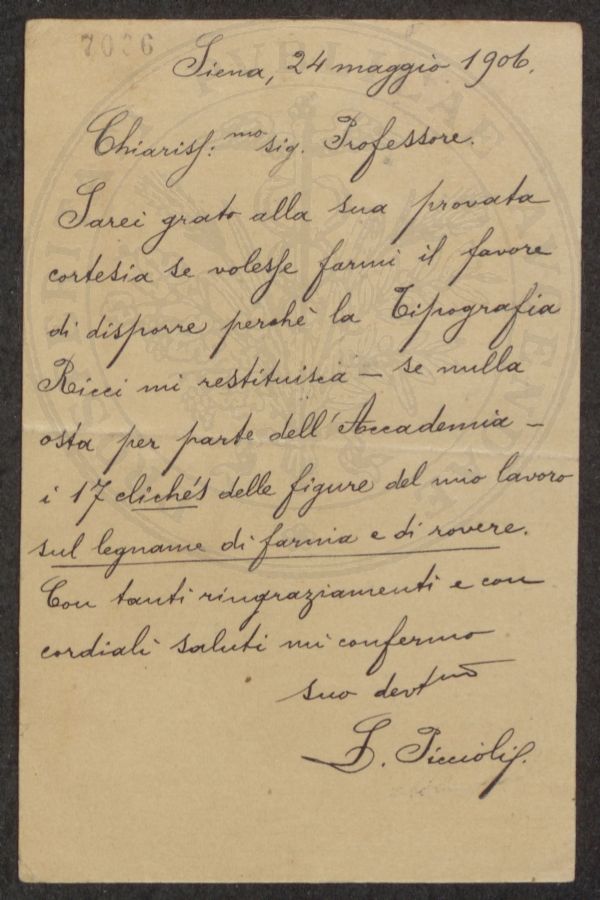 7036
Siena, 24 maggio 1906.
Chiariss: mo sig. Professore.
Sarei grato alla sua provata
cortesia se volesse farmi il favore
di disporre perchè la Tipografia
Ricci mi restituisca — se nulla
osta per parte dell'Accademia —
i 17 clichés delle figure del mio lavoro
sul legname di farnia e di rovere.
Con tanti ringraziamenti e con
cordiali saluti mi confermo
suo devtmo
L. Piccioli